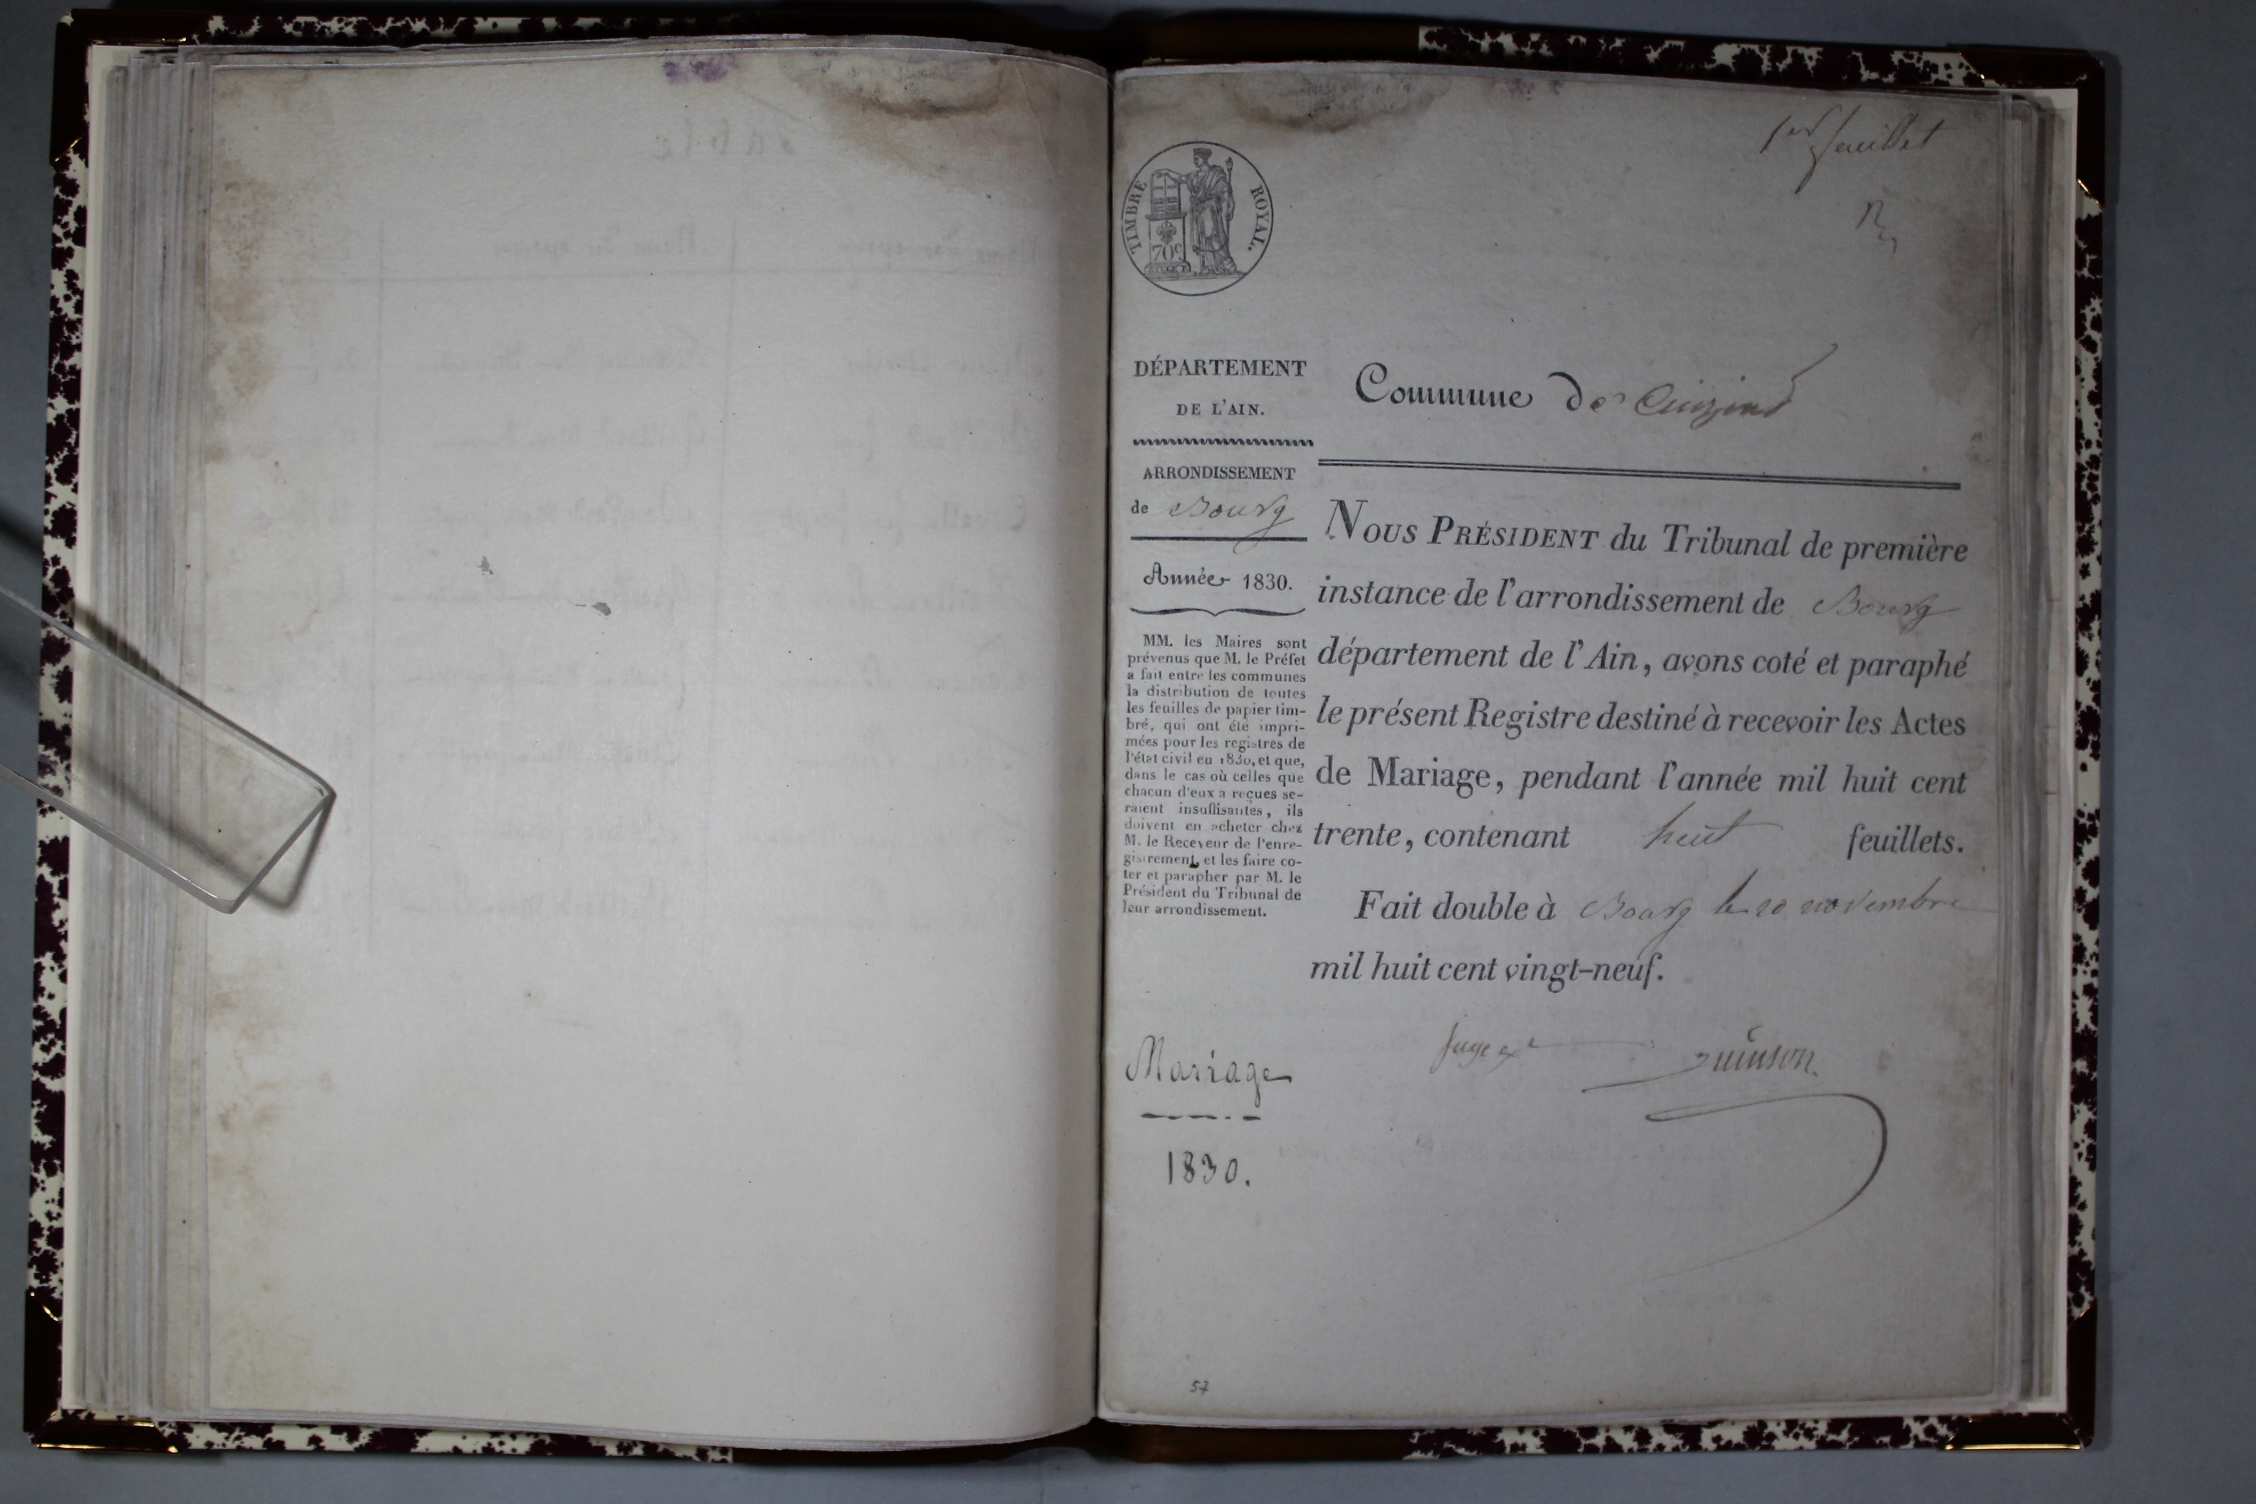 1er feuillet
TIMBRE ROYAL.
70c
DÉPARTEMENT
DE L'AIN.
Commune de
ARRONDISSEMENT
de Bourg
Année 1830.
MM. les Maires sont
prévenus que M. le Préfet
a fait entre les communes
la distribution de toutes
les feuilles de papier tim-
bré, qui ont été impri-
mées pour les registres de
l'état civil en 1830, et que,
dans le cas où celles que
chacun d'eux a reçues se-
raient insuffisantes, ils
doivent en acheter chez
M. le Receveur de l'enre-
gistrement, et les faire co-
ter et parapher par M. le
Président du Tribunal de
leur arrondissement.
NOUS PRÉSIDENT du Tribunal de première
instance de l'arrondissement de Bourg
département de l'Ain, avons coté et paraphé
le présent Registre destiné à recevoir les Actes
de Mariage, pendant l'année mil huit cent
trente, contenant huit feuillets.
Fait double à Bourg le 20 novembre
mil huit cent vingt-neuf.
Mariage
1830.
57